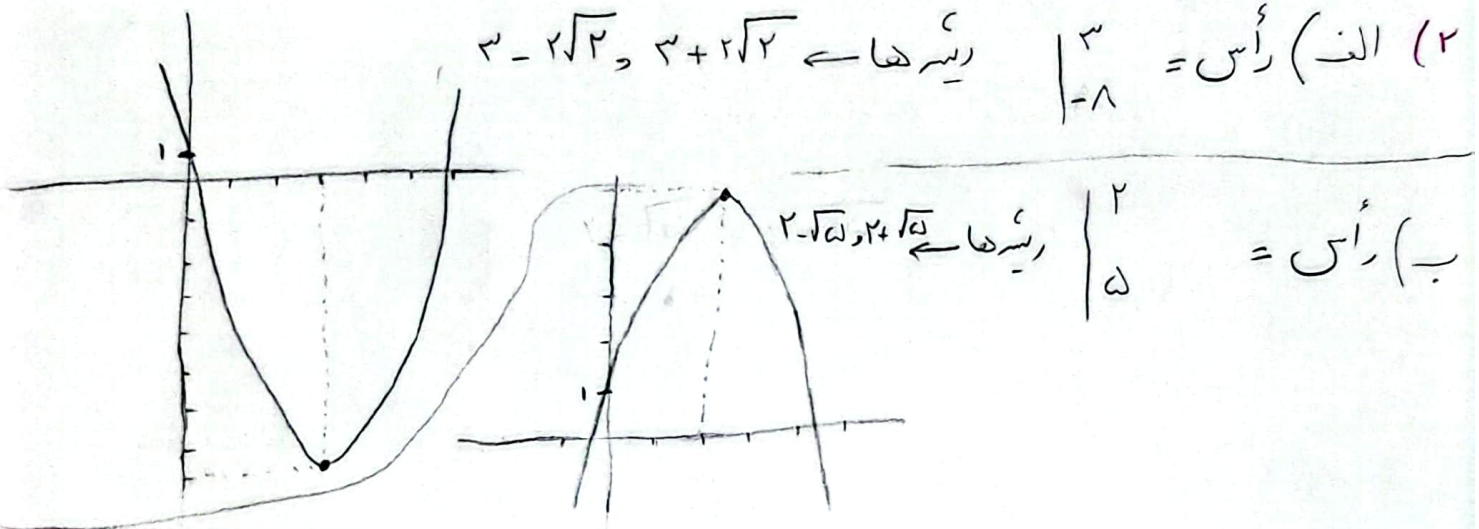 ۲) الف) رأس = ۳ -۸ ریشه ها ← ۳+۲√۲ و ۳-۲√۲
۱
ب) رأس = ۲ ۵ ریشه ها ← ۲+√۵ و ۲-√۵
۱